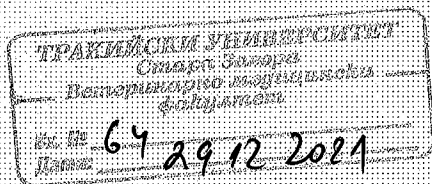 ТРАКИЙСКИ УНИВЕРСИТЕТ
Стара Загора
Ветеринарно медицински
факултет
64
Дата: 29 12 2021